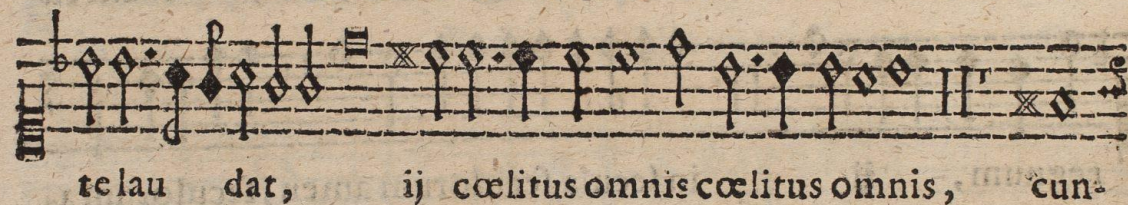 te lau dat, ij cœlitus omnis cœlitus omnis, cun-